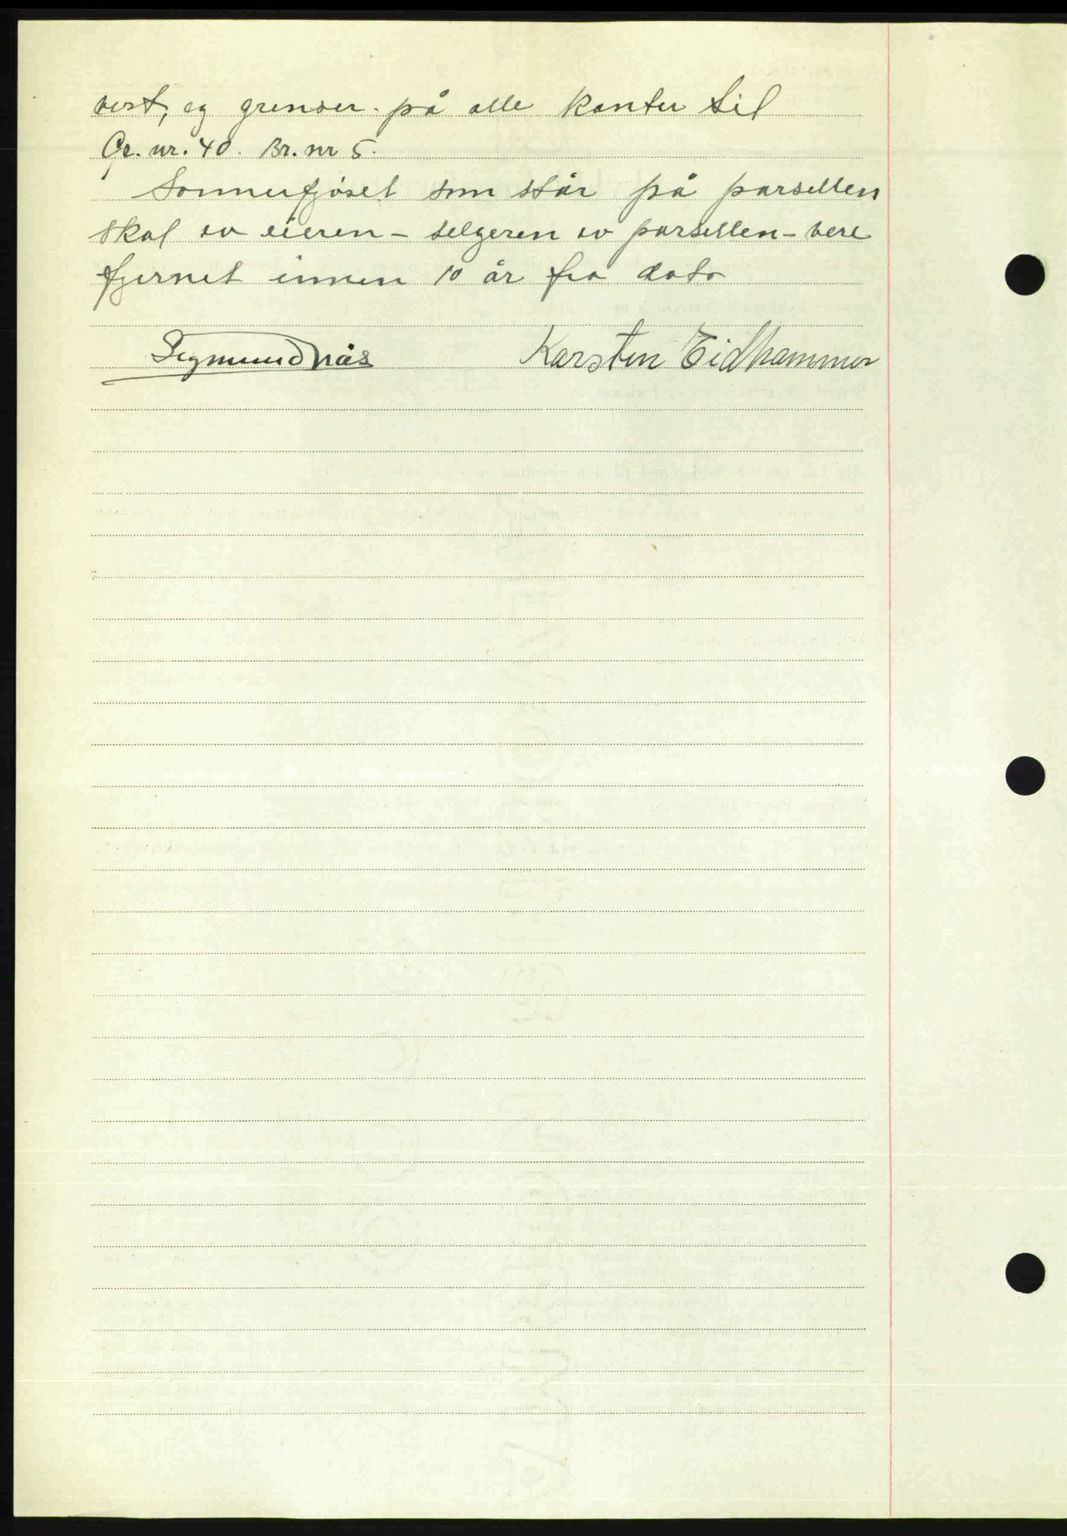 vest, og grenser på alle kanter til
Gr. nr. 40. Br. nr 5.
Sommerfjøset som står på parsellen
skal av eieren - selgeren av parsellen - vere
fjernet innen 10 år fra dato
Sigmund Nås Karsten Eidhammer